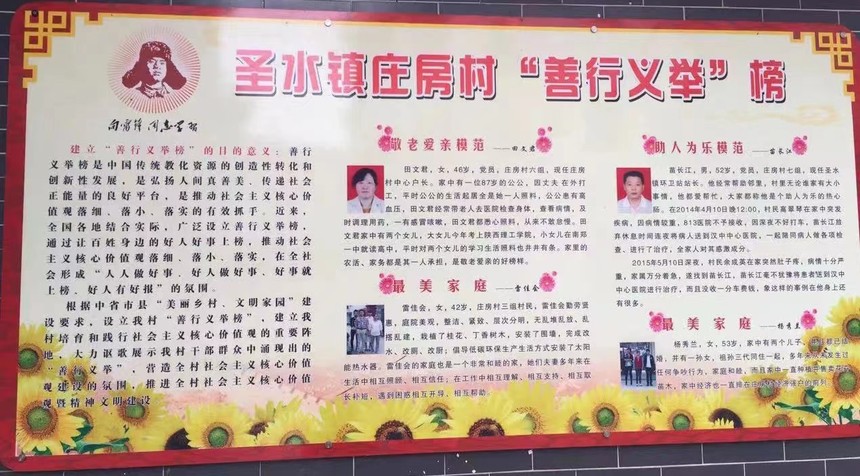 圣水镇庄房村“善行义举”榜
向雷锋同志学习
建立“善行义举榜”的目的意义：善行
义举榜是中国传统教化资源的创造性转化和
创新性发展，是弘扬人间真善美、传递社会
正能量的良好平台，是推动社会主义核心价
值观落细、落小、落实的有效抓手。近来，
全国各地结合实际，广泛设立善行义举榜，
通过让百姓身边的好人好事上榜，推动社会
主义核心价值观落细、落小、落实，在全社
会形成“人人做好事、好人做好事、好事就
上榜、好人有好报”的氛围。
根据中省市县“美丽乡村、文明家园”建
设要求，设立我村“善行义举榜”，建立我
村培育和践行社会主义核心价值观的重要阵
地，大力讴歌展示我村干部群众中涌现出的
“善行义举”，营造全村社会主义核心价值
观建设的氛围，推进全村社会主义核心价值
观暨精神文明建设
敬老爱亲模范——田文君
田文君，女，46岁，党员，庄房村六组，现任庄房
村中心户长。家中有一位87岁的公公，因丈夫在外打
工，平时公公的生活起居全是她一人照料，公公患有高
血压，田文君经常带老人去医院检查身体，查看病情，及
时调理用药，一有感冒咳嗽，田文君都悉心照料，从来不敢怠慢。田
文君家中有两个女儿，大女儿今年考上陕西理工学院，小女儿在南郑
一中就读高中，平时对两个女儿的学习生活照料也井井有条。家里的
农活、家务都是其一人承担，是敬老爱亲的好榜样。
最美家庭——雷佳会
雷佳会，女，42岁，庄房村三组村民，雷佳会勤劳贤
惠，庭院美观，整洁、紧致、层次分明，无乱堆乱放、乱
搭乱建，栽植了桂花、丁香树木，安装了围墙，完成改
水、改厕、改厨；倡导低碳环保生产生活方式安装了太阳
能热水器。雷佳会的家庭也是一个非常和睦的家，她们夫妻多年来在
生活中相互照顾、相互信任；在工作中相互理解、相互支持、相互取
长补短，遇到困惑相互开导，相互帮助。
助人为乐模范——苗长江
苗长江，男，52岁，党员，庄房村七组，现任圣水
镇环卫站站长，他经常帮助邻里，村里无论谁家有大小
事情，他都爱帮忙，大家都称他是个助人为乐的热心
肠。在2014年4月10日晚12:00，村民高翠琴在家中突发
疾病，因病情较重，813医院不予接收，因深夜不好打车，苗长江放
弃休息时间连夜将病人送到汉中中心医院，一起陪同病人做各项检
查、进行了治疗，全家人对其感激成分。
2015年5月10日深夜，村民余成英在家突然肚子疼，病情十分严
重，家属万分着急，遂找到苗长江，苗长江毫不犹豫将患者送到汉中
中心医院进行治疗，而且没收一分车费钱，象这样的事例在他身上还
有很多。
最美家庭——杨秀兰
杨秀兰，女，53岁，家中有两个儿子，都已结
婚，并有一孙女，祖孙三代同住一起，多年来从未发生过
任何争吵行为，家庭和睦，而且家中一直种植中售卖花
苗木，家中经济也一直排在庄房村经济强户的前列